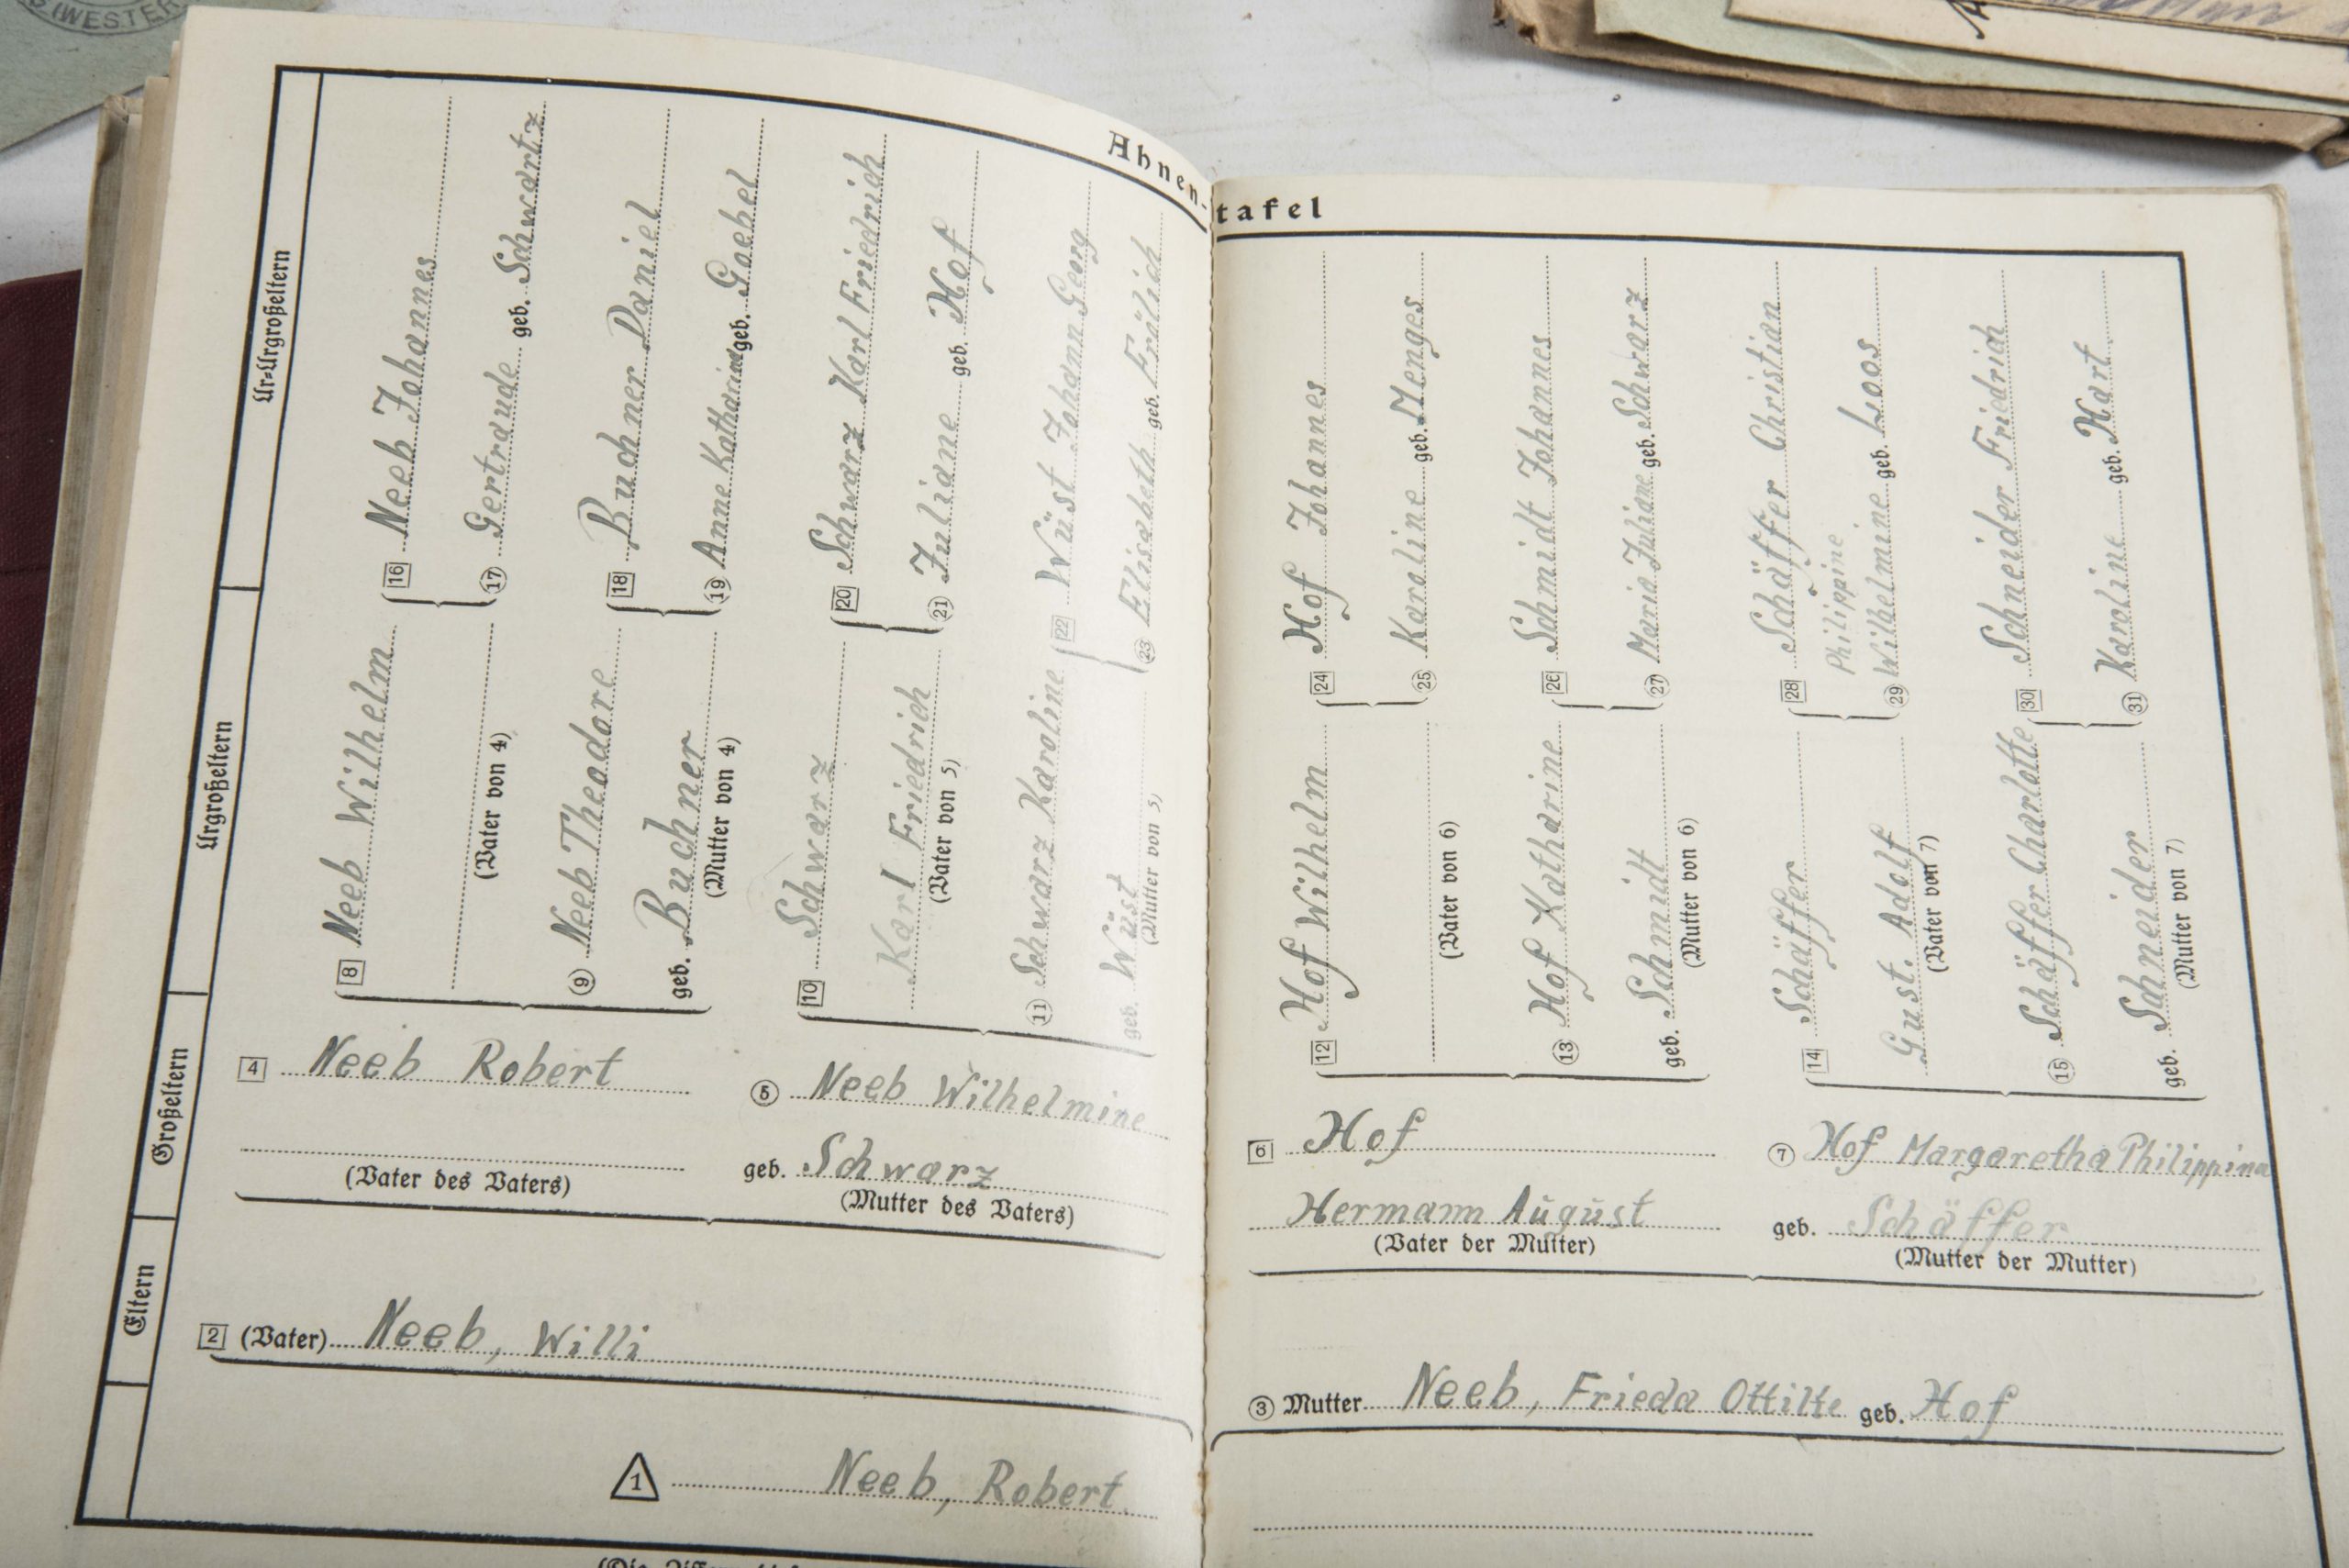 Ahnen-tafel
Ur-Urgroßeltern
16 Neeb Johannes
17 Gertraude geb. Schwartz
18 Buchner Daniel
19 Anne Katharina geb. Goebel
20 Schwarz Karl Friedrich
21 Juliane geb. Hof
22 Wüst Johann Georg
23 Elisabeth geb. Frölich
24 Hof Johannes
25 Karoline geb. Menges
26 Schmidt Johannes
27 Maria Juliane geb. Schwarz
28 Schäffer Christian
Philippine
29 Wilhelmine geb. Loos
30 Schneider Friedrich
31 Karoline geb. Hart
Urgroßeltern
8 Neeb Wilhelm
(Vater von 4)
9 Neeb Theodore
geb. Buchner
(Mutter von 4)
10 Schwarz
Karl Friedrich
(Vater von 5)
11 Schwarz Karoline
geb. Wüst
(Mutter von 5)
12 Hof Wilhelm
(Vater von 6)
13 Hof Katharine
geb. Schmidt
(Mutter von 6)
14 Schäffer
Gust. Adolf
(Vater von 7)
15 Schäffer Charlotte
geb. Schneider
(Mutter von 7)
Großeltern
4 Neeb Robert
(Vater des Vaters)
5 Neeb Wilhelmine
geb. Schwarz
(Mutter des Vaters)
6 Hof
Hermann August
(Vater der Mutter)
7 Hof Margaretha Philippina
geb. Schäffer
(Mutter der Mutter)
Eltern
2 (Vater) Neeb, Willi
3 Mutter Neeb, Frieda Ottilie geb. Hof
1 Neeb, Robert